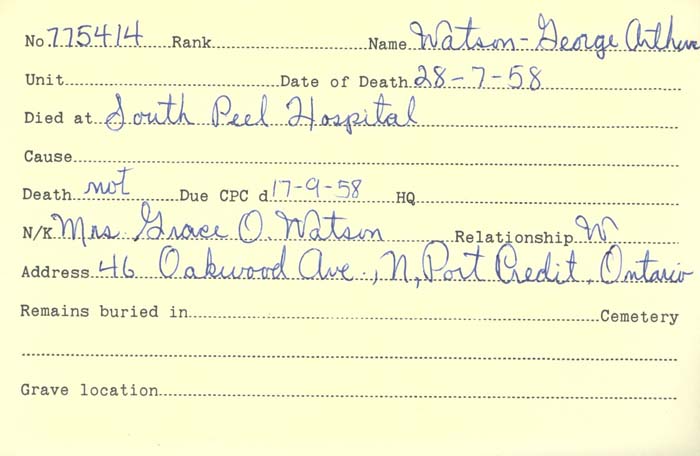 No. 775414 Rank Name Watson-George Arthur
Unit Date of Death 28-7-58
Died at South Peel Hospital
Cause
Death not Due CPC d 17-9-58 HQ
N/K Mrs. Grace O. Watson Relationship W
Address 46 Oakwood Ave., N, Port Credit, Ontario
Remains buried in Cemetery
Grave location